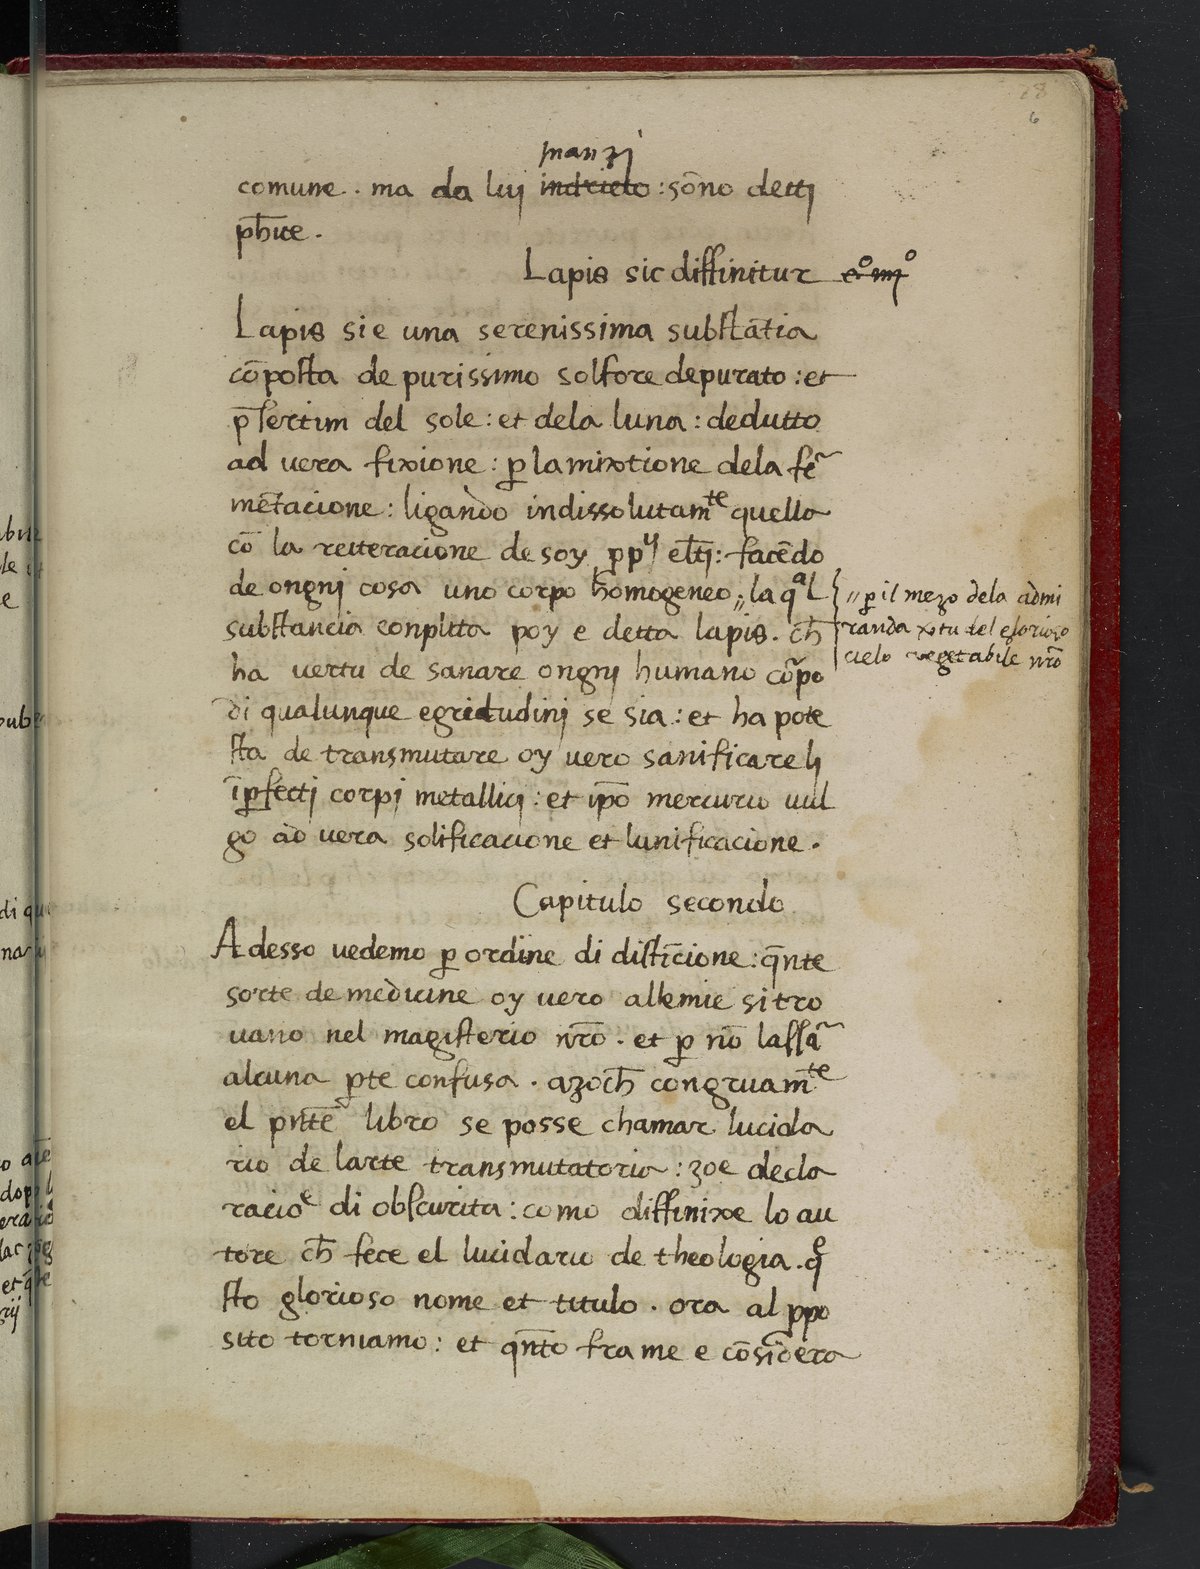 28
6
manzi
comune . ma da luj indrieto : sōno dettj
ph̄ice .
Lapis sic diffinitur
Lapis si e una serenissima substātia
cōposta de purissimo solfore depurato : et
p̄sertim del sole : et dela luna : dedutto
ad vera fixione : ꝑ la mixtione dela fē
mētacione : ligando indissolutam̄te quello
cō la reiteracione de soy ppʲ eltj : facēdo
de ongnj cosa uno corpo homogeneo ,, la qªl
substancia conplita poy e detta lapis . ch̄
ha vertu de sanare ongnj humano cōrpo
di qualunque egritudinj se sia : et ha pote
sta de transmutare oy vero sanificare lj
īꝑfectj corpj metallicj : et ip̄o mercurio vul
go ad vera solificacione et lunificacione .
,, ꝑ il mezo dela admi
randa virtu del glorioso
cielo vegetabile nr̄o
Capitulo secondo
Adesso vedemo ꝑ ordine di distīcione : qn̄te
sorte de medicine oy vero alkemie si tro
vano nel magisterio nr̄o . et ꝑ nō lassā
alcuna ꝑte confusa . azoch̄ congruam̄te
el pn̄te libro se posse chamar lucida
rio de larte transmutatoria : zoe decla
racioe di obscurita : como diffinixe lo au
tore ch̄ fece el lucidario de theologia . qe
sto glorioso nome et titulo . ora al ppo
sito torniamo : et qn̄to fra me e cōsidera